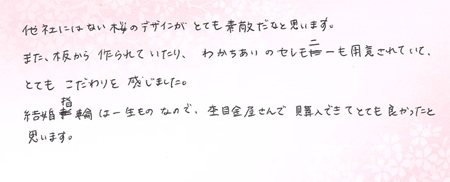 他社にはない桜のデザインがとても素敵だなと思います。
また、板から作られていたり、わかちあいのセレモニーも用意されていて、
とてもこだわりを感じました。
結婚指輪は一生ものなので、杢目金屋さんで購入できてとても良かったと
思います。